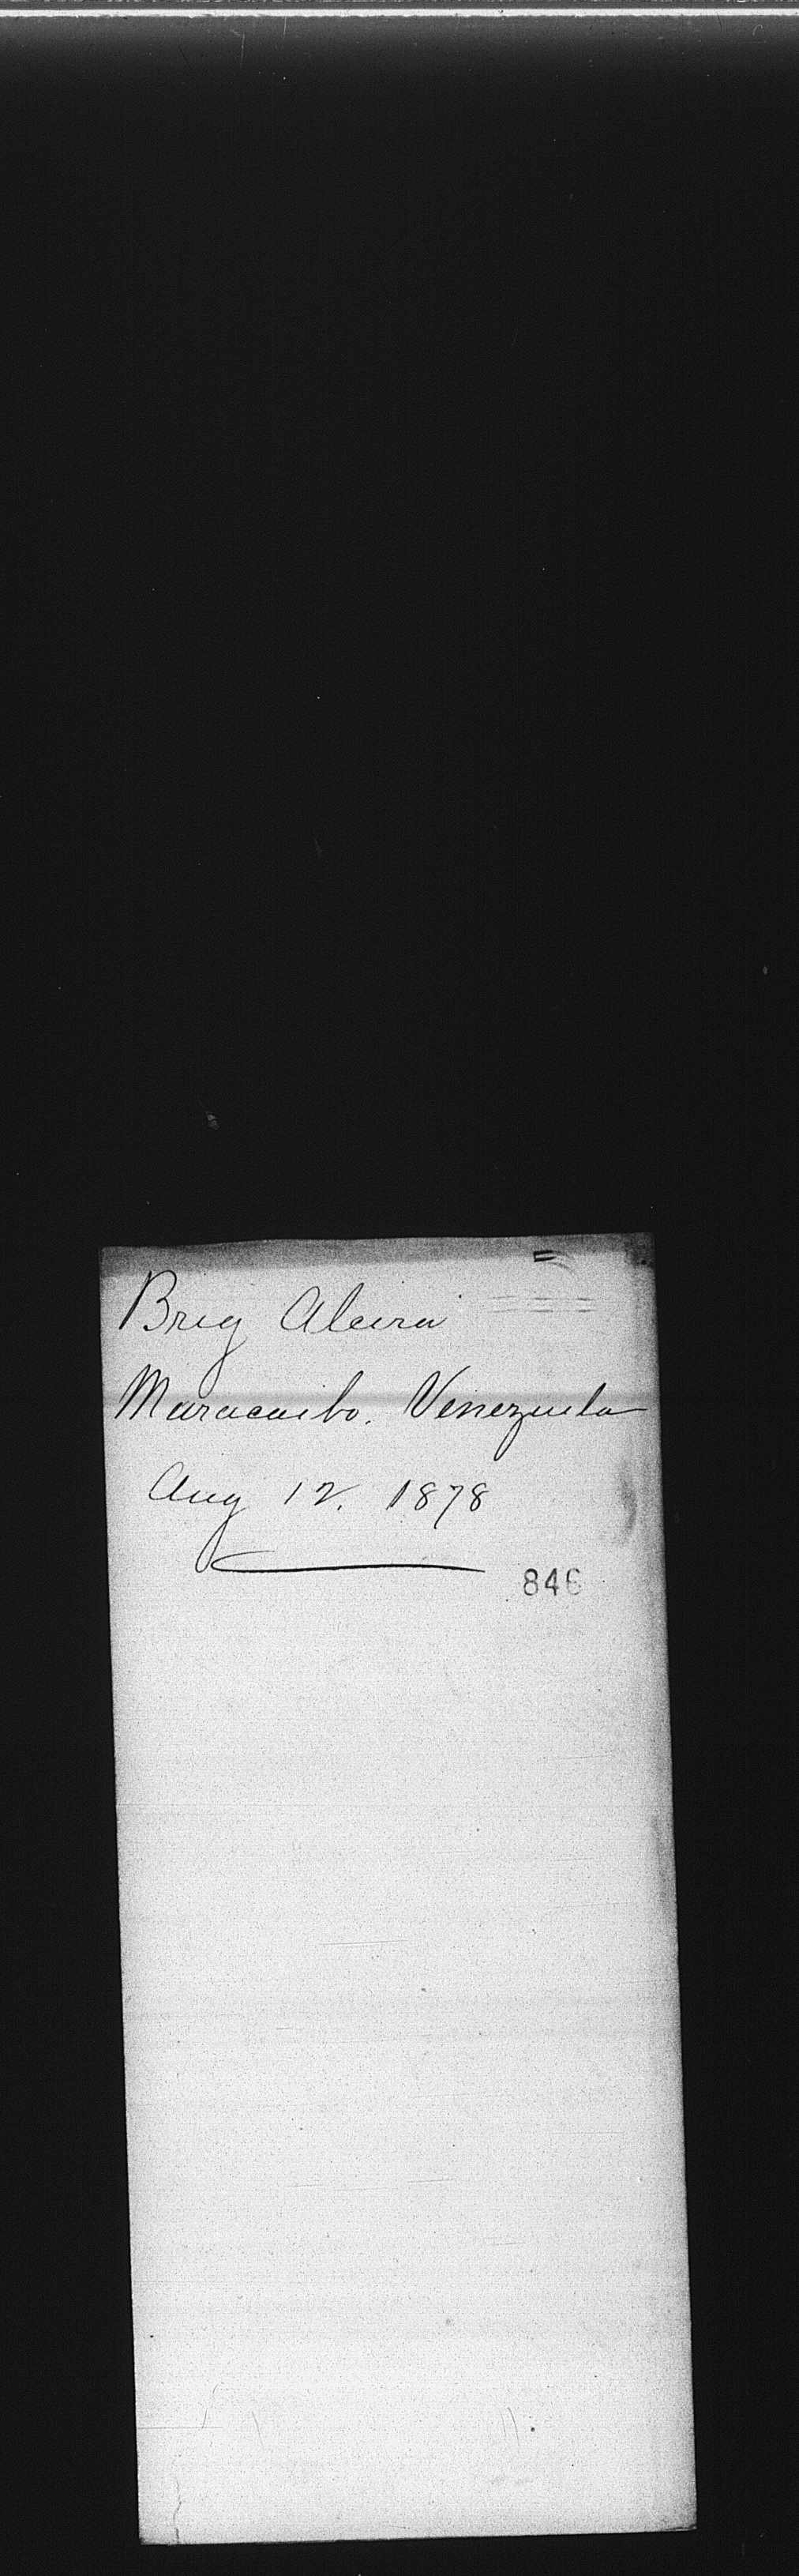 Brig Alcira
Maracaibo. Venezuela
Aug 12. 1878
846